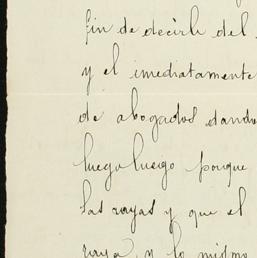 fin de decirle del
y el imediatamente
de abogados dando
luego luego porque
las rayas y que el
raya, y lo mismo